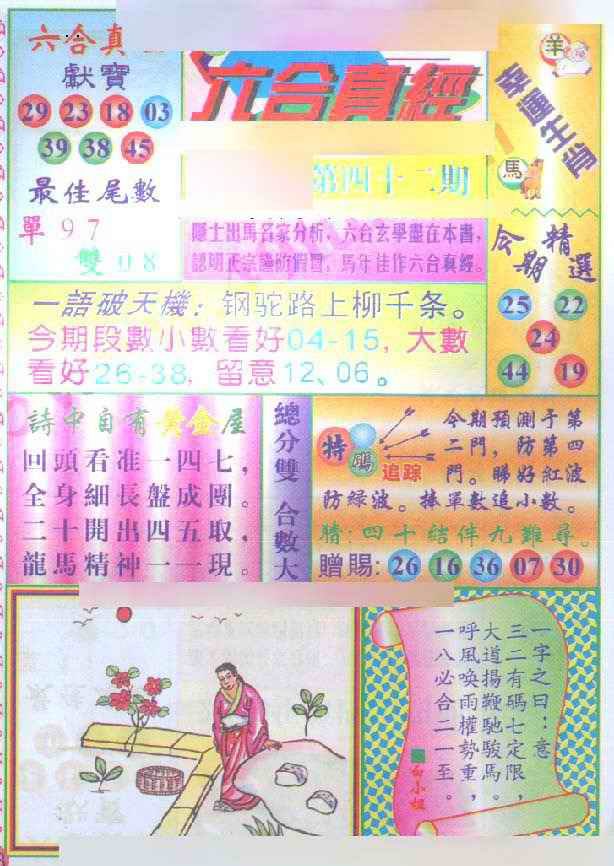 六合真
獻寶
29 23 18 03
39 38 45
最佳尾數
單 9 7
雙 0 8
六合真經
第四十二期
隱士出馬名家分析，六合玄學盡在本書，
認明正宗謹防假冒，馬年佳作六合真經。
羊
幸運生肖
馬
今期精選
25 22
24
44 19
一語破天機：钢驼路上柳千条。
今期段數小數看好04-15，大數
看好26-38，留意12、06。
詩中自有黃金屋
回頭看准一四七，
全身細長盤成團。
二十開出四五取，
龍馬精神一一現。
總分雙 合數大
特碼
追踪
今期預測予第
二門，防第四
門。睇好紅波
防绿波。捧單數追小數。
猜：四十结伴九難尋。
贈賜：26 16 36 07 30
一字之曰：意
三二有碼七定限，
大道揚鞭馳駿馬。
呼風喚雨權勢重，
一八必合二一至。
白小姐